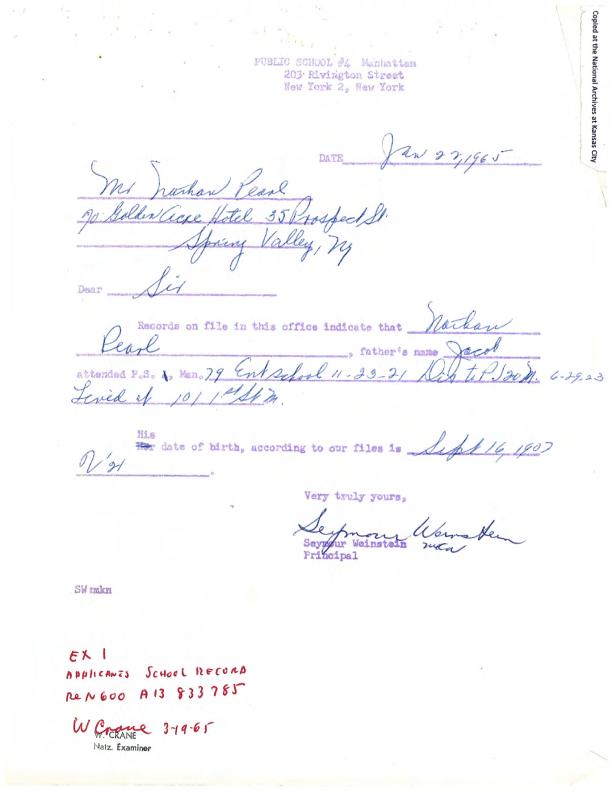 Copied at the National Archives at Kansas City
PUBLIC SCHOOL #4 Manhattan
203 Rivington Street
New York 2, New York
DATE Jan 22, 1965
Mr Nathan Pearl
℅ Golden Acre Hotel 35 Prospect St.
Spring Valley, Ny
Dear Sir
Records on file in this office indicate that Nathan
Pearl, father's name Jacob
attended P.S. Man. 79 Ent school 11-23-21 Dis to P.S 20 M. 6-29-23
Lived at 101 1st St M.
His
Her date of birth, according to our files is Sept 16, 1907
.
Very truly yours,
Seymour Weinstein
mkn
Seymour Weinstein
Principal
SW:mkn
EX 1
APPLICANTS SCHOOL RECORD
Re N600 A13 833 785
W Crane 3-19-65
W. CRANE
Natz. Examiner